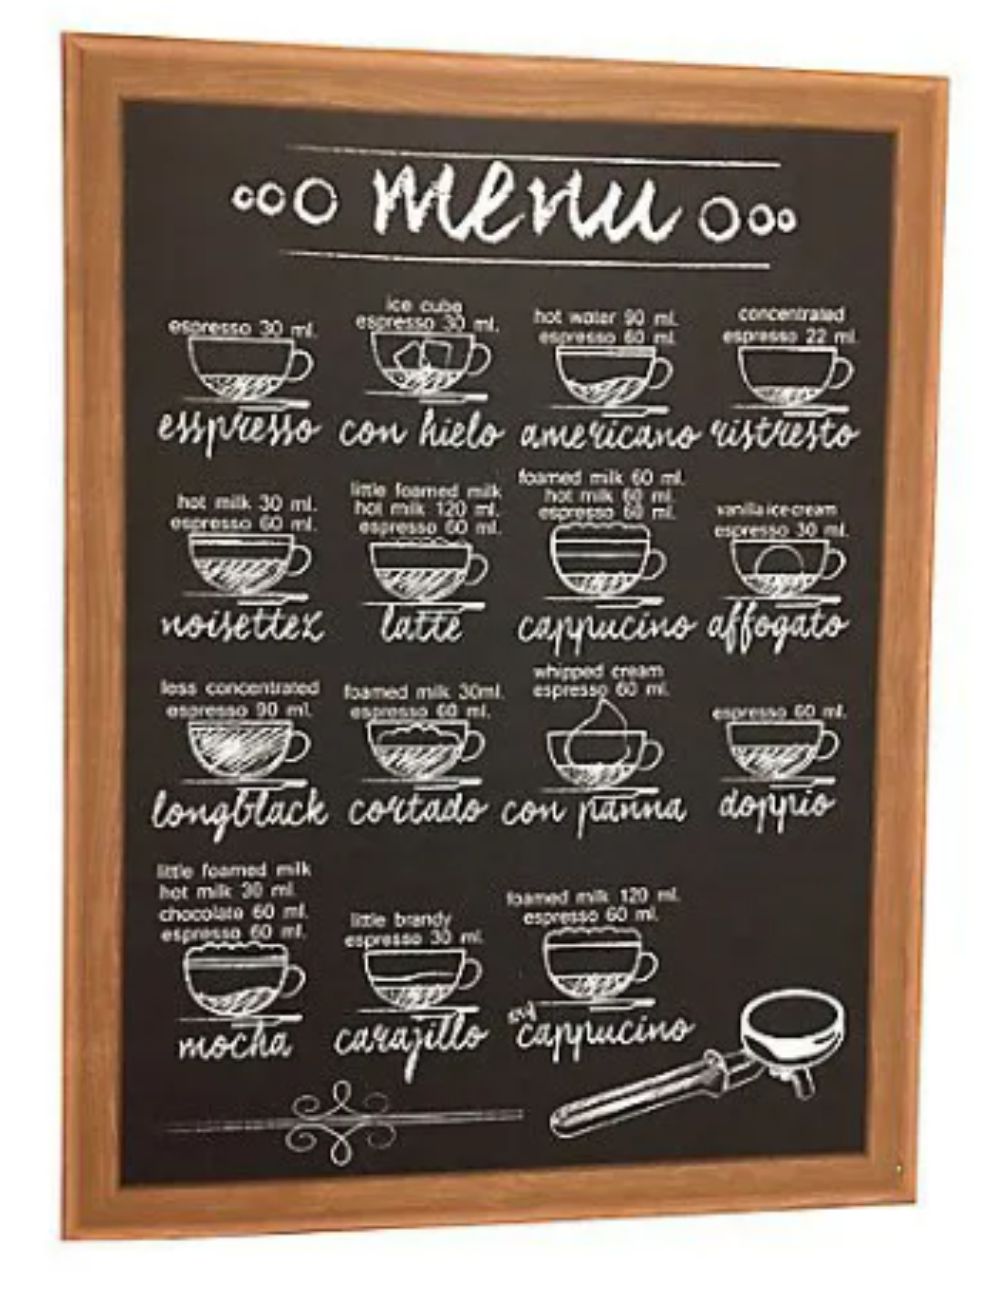 menu
espresso 30 ml.
esspresso
ice cube
espresso 30 ml.
con hielo
hot water 90 ml.
espresso 60 ml.
americano
concentrated
espresso 22 ml.
ristresto
hot milk 30 ml.
espresso 60 ml.
noisettez
little foamed milk
hot milk 120 ml.
espresso 60 ml.
latte
foamed milk 60 ml.
hot milk 60 ml.
espresso 60 ml.
cappucino
vanilla ice-cream
espresso 30 ml.
affogato
less concentrated
espresso 90 ml.
longblack
foamed milk 30ml.
espresso 60 ml.
cortado
whipped cream
espresso 60 ml.
con panna
espresso 60 ml.
doppio
little foamed milk
hot milk 30 ml.
chocolate 60 ml.
espresso 60 ml.
mocha
little brandy
espresso 30 ml.
carajillo
foamed milk 120 ml.
espresso 60 ml.
cappucino